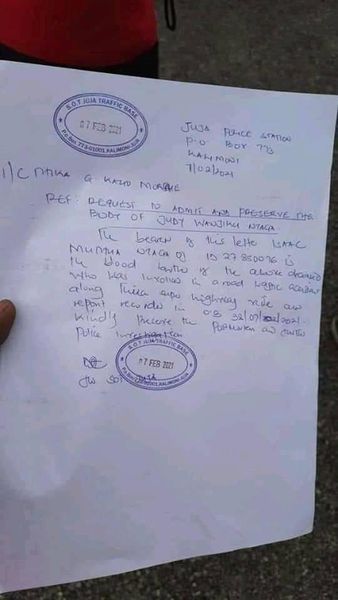 S.O.T JUJA TRAFFIC BASE
07 FEB 2021
P.O. Box 773-01001, KALIMONI, JUJA
JUJA POLICE STATION
P.O BOX 773
KALIMONI
7/02/2021
I/C
REF: REQUEST TO ADMIT AND PRESERVE THE
BODY OF JUDY WANJIKU NTAGA
The bearer of this letter ISAAC
OF ID 27850076 is
the blood brother of the above deceased
who was involve in a road traffic accident
along Thika super highway vide an
report recorded in OB 32/07/02/2021.
Kindly preserve the
police investigation
S.O.T JUJA TRAFFIC BASE
07 FEB 2021